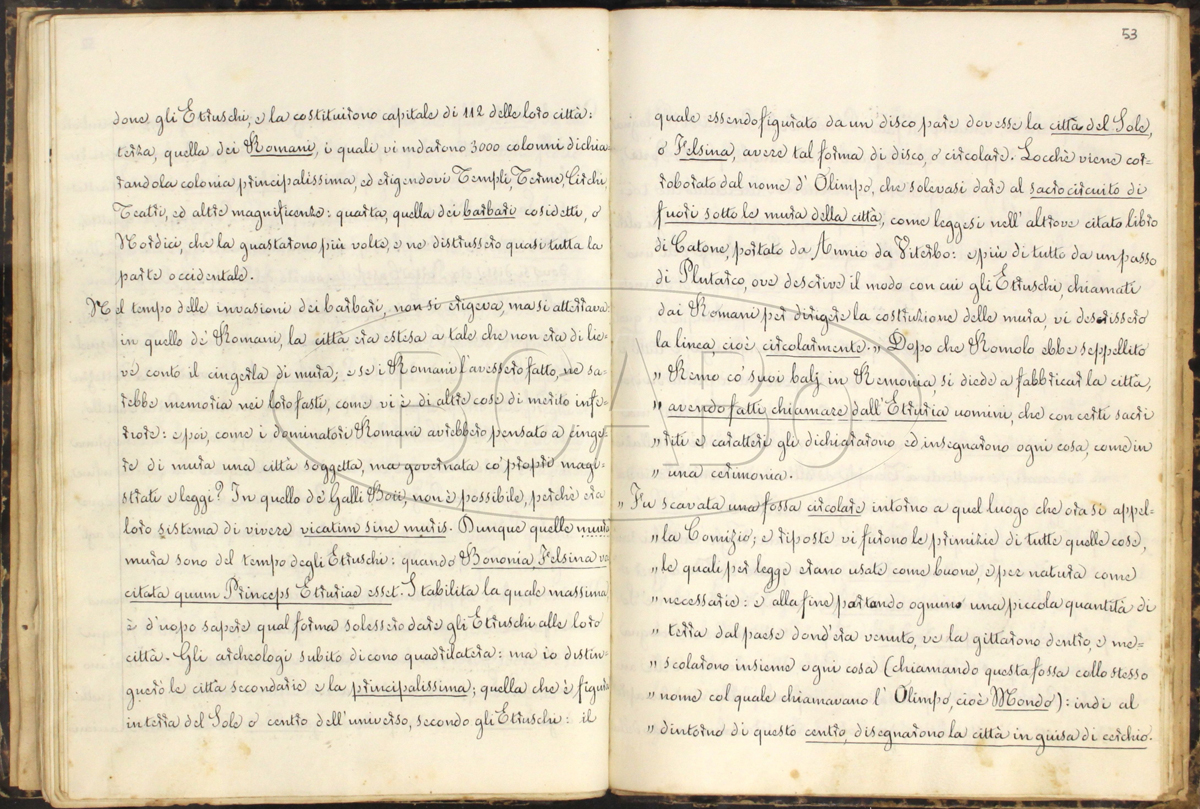 done gli Etruschi, e la costituirono capitale di 112 delle loro città:
terza, quella dei Romani, i quali vi mdarono 3000 colonni dichia
randola colonia principalissima, ed erigendovi Templi, Terme, Circhi,
Teatri, ed altre magnificenze: quarta, quella dei barbari cosidetti, o
Nordici, che la guastarono più volte, e ne distrussero quasi tutta la
parte occidentale.
Nel tempo delle invasioni dei barbari, non si erigeva, ma si atterrava:
in quello de' Romani, la città era estesa a tale che non era di lie-
ve conto il cingerla di mura; e se i Romani l'avessero fatto, ne sa-
rebbe memoria nei loro fasti, come vi è di altre cose di merito infe-
riore: e poi, come i dominatori Romani avrebbero pensato a cinge-
re di mura una città soggetta, ma governata co' propri magi-
strati e leggi? In quello de' Galli Boii, non è possibile, perchè era
loro sistema di vivere vicatim sine muris. Dunque quelle mura
mura sono del tempo degli Etruschi: quando Bononia Felsina vo
citata quum Princeps Etruriae esset. Stabilita la quale massima
è d'uopo sapere qual forma solessero dare gli Etruschi alle loro
città. Gli archeologi subito dicono quadrilatera: ma io distin-
guerò le città secondarie e la principalissima; quella che è figura
in terra del Sole o centro dell'universo, secondo gli Etruschi: il
53
quale essendo figurato da un disco pare dovesse la città del Sole,
o Felsina, avere tal forma di disco, o circolare. Locchè viene cor-
roborato dal nome d'Olimpo, che solevasi dare al sacro circuito di
fuori sotto le mura della città, come leggesi nell'altrove citato libro
di Catone, portato da Annio da Viterbo: e più di tutto da un passo
di Plutarco, ove descrive il modo con cui gli Etruschi, chiamati
dai Romani per dirigere la costruzione delle mura, vi descrissero
la linea, cioè circolarmente. „ Dopo che Romolo ebbe seppellito
„ Remo co' suoi balj in Remonia, si diede a fabbricar la città,
„ avendo fatti chiamare dall'Etruria uomini, che con certi sacri
„ riti e caratteri gli dichiararono ed insegnarono ogni cosa, come in
„ una cerimonia.
„ Fu scavata una fossa circolare intorno a quel luogo che ora si appel-
„ la Comizio; e riposte vi furono le primizie di tutte quelle cose,
„ le quali per legge erano usate come buone, e per natura come
„ necessarie: e alla fine portando ognuno una piccola quantità di
„ terra dal paese dond'era venuto, ve la gittarono dentro, e me-
„ scolarono insieme ogni cosa (chiamando questa fossa collo stesso
„ nome col quale chiamavano l'Olimpo, cioè Mondo): indi al
„ dintorno di questo centro, disegnarono la città in guisa di cerchio.
BOABO